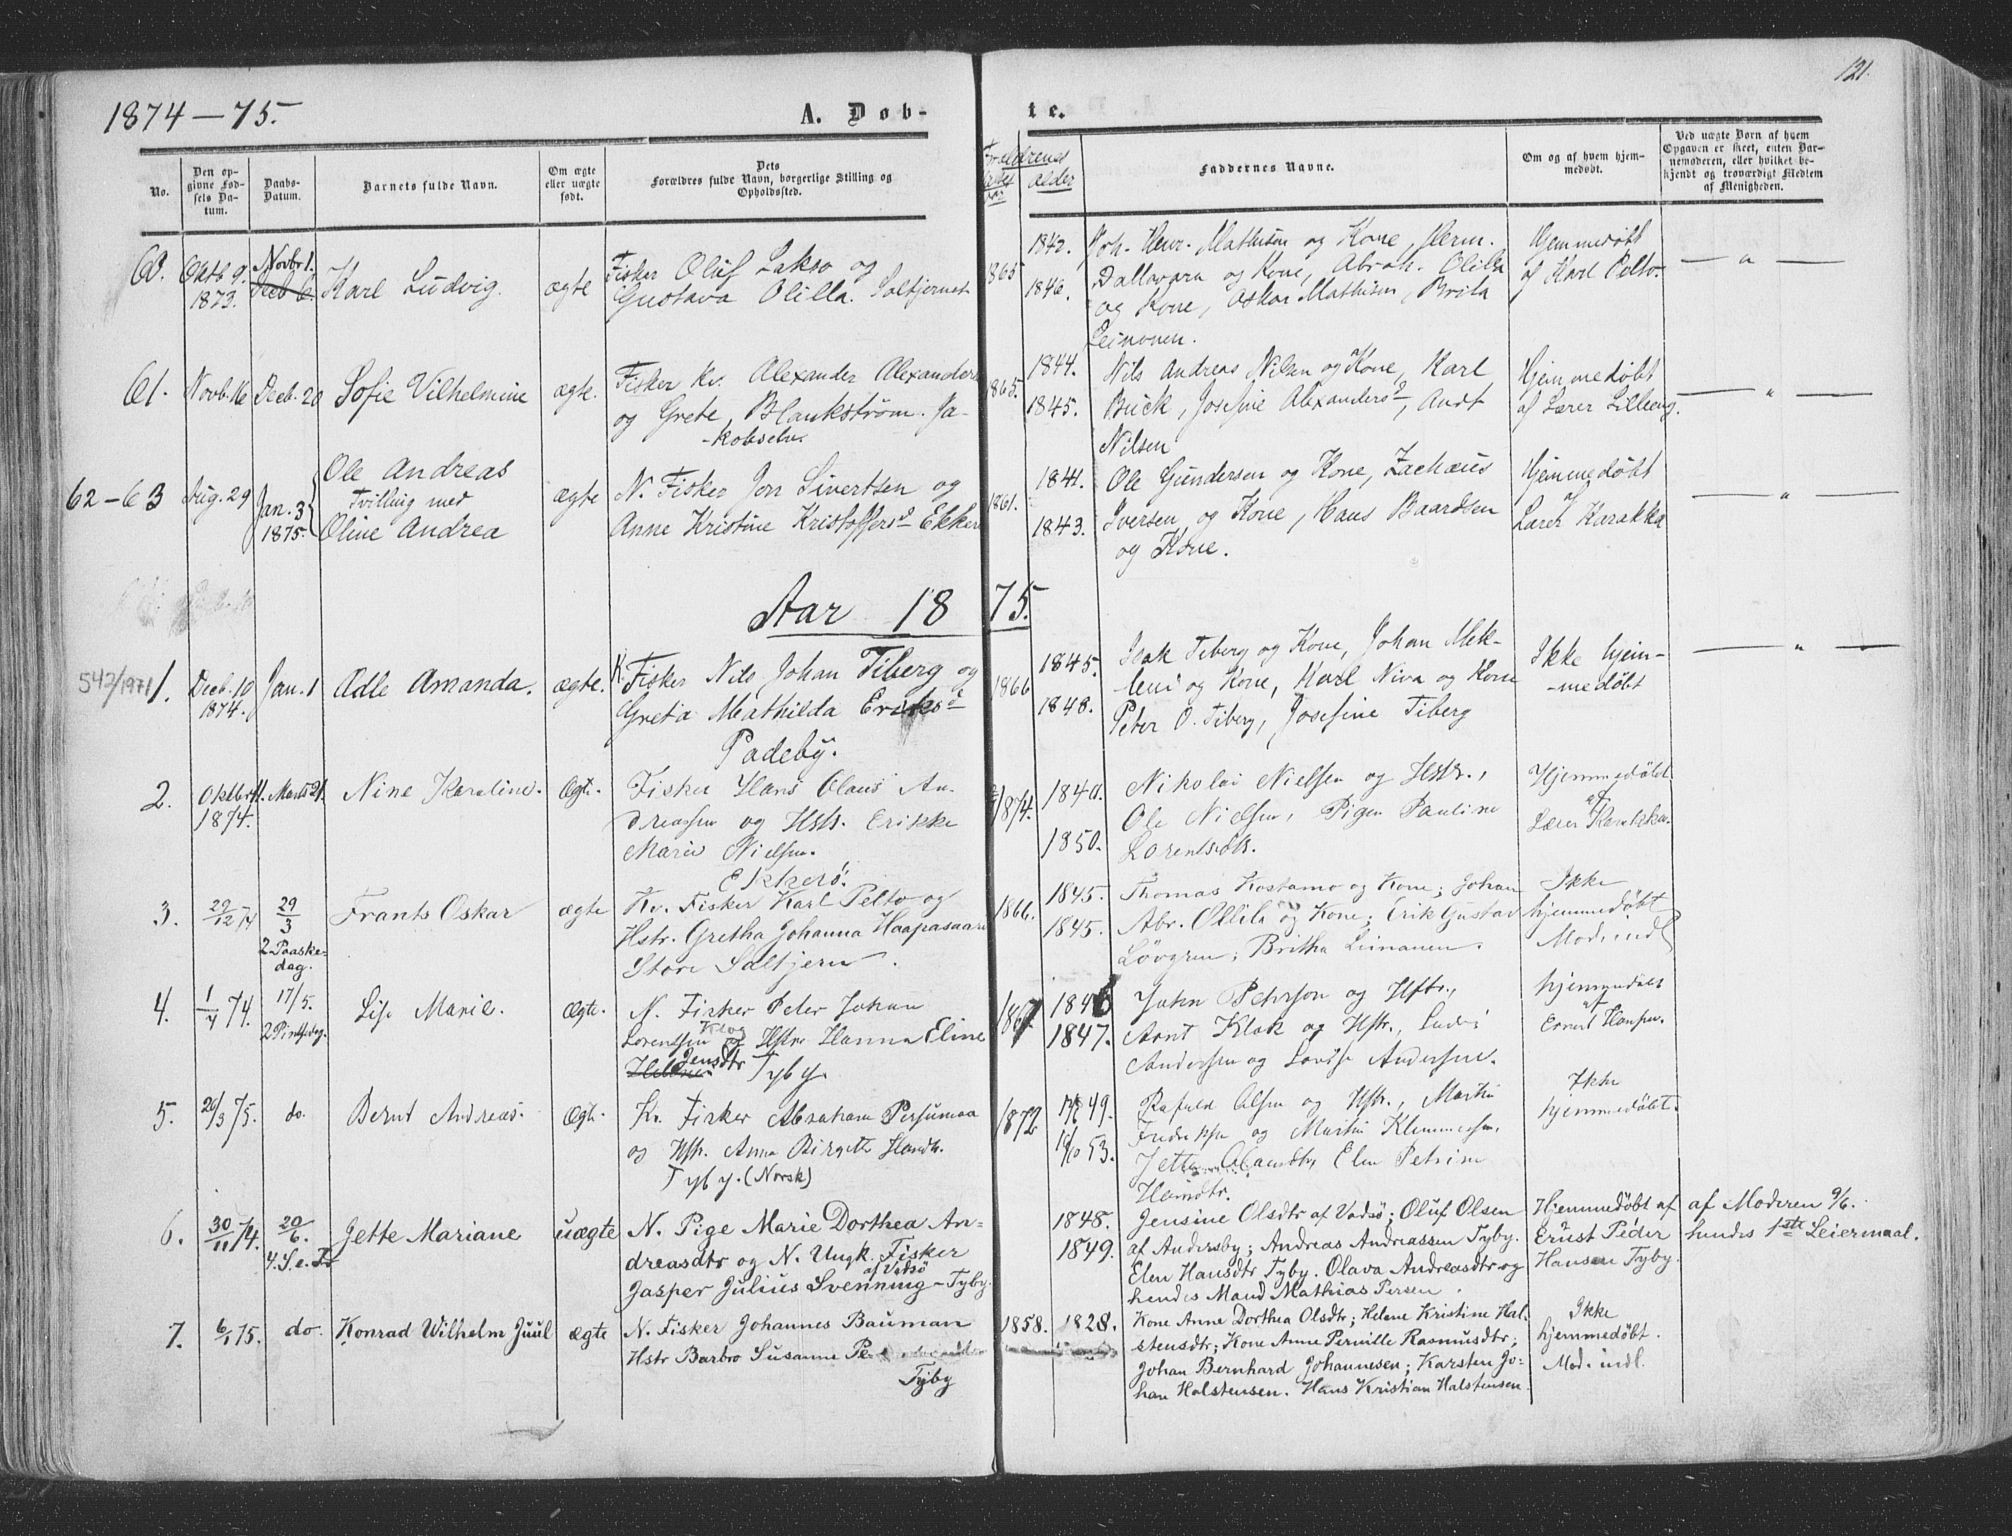 1874-75.
A. Døb-
te.
121.
No.
Den op-
givne Fød-
sels Da-
tum.
Daabs-
Datum.
Barnets fulde Navn.
Om ægte
eller uægte
født.
Dets
Forældres fulde Navn, borgerlige Stilling og
Opholdssted.
Forældrenes
alder
Faddernes Navne.
Om og af hvem hjem-
medøbt.
Ved uægte Børn af hvem
Opgaven er skeet, enten Bar-
nemoderen, eller hvilket be-
kjendt og troværdigt Medlem
af Menigheden.
60.
Oktb 9.
1873.
Novbr 1.
Decb 6
Karl Ludvig.
ægte
Fisker Oluf Lakso og
Gustava Olilla. Saltjernet
1865
1842.
1846.
Joh. Henr. Mathisen og Kone, Herm.
Dallavara og Kone, Abrah. Olilla
og Kone, Oskar Mathisen, Brita
Leinonen.
Hjemmedøbt
af Karl Pelto.
— „ —
61.
Novb. 16
Decb. 20
Sofie Vilhelmine
ægte.
Fisker Kv. Alexander Alexanders
og Grete Blankstrøm. Ja-
-kobselv.
1865.
1844.
1845.
Nils Andreas Nilsen og Kone, Karl
Buck, Josefine Alexandersd, Andt
Nilsen
Hjemmedøbt
af Lærer Lilleeng.
— „ —
62-63
Aug. 29
Jan. 3
1875.
Ole Andreas
Tvilling med
Oline Andrea
ægte
N. Fisker Jon Sivertsen og
Anne Kristine Kristoffersd Ekker
1861.
1841.
1843.
Ole Gundersen og Kone, Zachæus
Iversen og Kone, Hans Baardsen
og Kone.
Hjemmedøbt
af
Lærer Karakka
— „ —
Aar 1875.
543/1971
1.
Decb. 10
1874.
Jan. 1
Adle Amanda.
ægte.
K. Fisker Nils Johan Tiberg og
Greta Mathilda Eriksd
Padeby.
1866
1845.
1848.
Isak Tiberg og Kone, Johan Mek-
leni og Kone, Karl Niva og Kone
Peter O. Tiberg, Josefine Tiberg
Ikke hjem-
-medøbt
— „ —
2.
Oktbr 11.
1874.
Marts 21.
Nine Karoline.
Ægte.
Fisker Hans Olaus An-
dreassen og Hstr. Erikke
Marie Nielsen.
Ekkerø.
1874.
1840.
1850.
Nikolai Nielsen og Hstr.,
Ole Nielsen, Pigen Pauline
Lorentsdtr.
Hjemmedøbt
af
Lærer Karakka.
3.
29/12 74
29/3
2. Paaske-
dag.
Frants Oskar
ægte
Kv. Fisker Karl Pelto og
Hstr. Gretha Johanna Haapasaari
Store Saltjern.
1866.
1845.
1845.
Thomas Kostamo og Kone; Johan
Abr. Ollila og Kone; Erik Gustav
Løvgren; Britha Leinanen.
Ikke
hjemmedøbt
Mod. indl
4.
74.
17/5.
2 Pintsdag.
Lise Marie.
Ægte.
N. Fisker Peter Johan
Lorentsen Klog og Hstr Hanna Eline
Jensdtr Tyby
1867
1846
1847.
John Pehrson og Hstr.,
Arnt Klok og Hstr., Ludv.
Andersen og Lovise Andersen.
hjemmedøbt
af
Ernst Hansen.
5.
20/3 75.
do.
Bernt Andreas.
Ægte.
Kv. Fisker Abraham Persumaa
og Hstr. Anna Birgith Handr.
Tyby. (Norsk)
1872
49.
53.
Rafael Olsen og Hstr., Martin
Fredriksen og Martin Klemmetsen,
Jette Olausdtr, Elen Petrine
Heinsdtr.
Ikke
hjemmedøbt.
6.
30/11 74.
20/6.
4. S. e. Tr
Jette Mariane
uægte
N. Pige Marie Dorthea An-
dreasdtr og N. Ungk. Fisker
af Vadsø
Jasper Julius Svenning - Tyby.
1848.
1849.
Jensine Olsdtr af Vadsø; Oluf Olsen
af Andersby; Andreas Andreassen Tyby.
Elen Hansdtr Tyby. Olava Andreasdtr og
hendes Mand Mathias Persen.
Hjemmedøbt af
Ernst Peder
Hansen Tyby.
af Moderen 9/6.
hendes 1ste Leiermaal.
7.
6/1 75.
do.
Konrad Wilhelm Juul
ægte
N. Fisker Johannes Bauman
Hstr Barbro Susanne
Tyby
1858.
1828.
Kone Anne Dorthea Olsdtr; Helene Kristine Hal-
stensdtr; Kone Anne Pernille Rasmusdtr;
Johan Bernhard Johannesen; Karsten Jo-
han Halstensen. Hans Kristian Halstensen.
Ikke
hjemmedøbt.
Mod. indl.